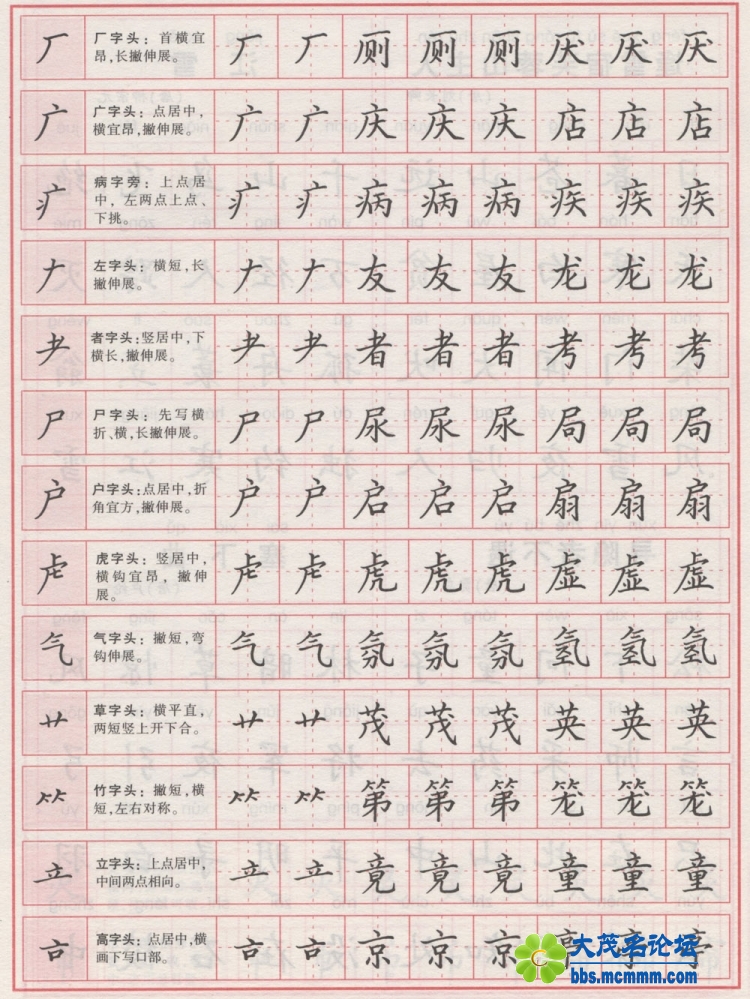 厂 厂字头：首横宜昂，长撇伸展。 厂 厂 厕 厕 厕 厌 厌 厌
广 广字头：点居中，横宜昂，撇伸展。 广 广 庆 庆 庆 店 店 店
疒 病字旁：上点居中，左两点上点、下挑。 疒 疒 病 病 病 疾 疾 疾
𠂇 左字头：横短，长撇伸展。 𠂇 𠂇 友 友 友 龙 龙 龙
耂 者字头：竖居中，下横长，撇伸展。 耂 耂 者 者 者 考 考 考
尸 尸字头：先写横折、横，长撇伸展。 尸 尸 尿 尿 尿 局 局 局
户 户字头：点居中，折角宜方，撇伸展。 户 户 启 启 启 扇 扇 扇
虍 虎字头：竖居中，横钩宜昂，撇伸展。 虍 虍 虎 虎 虎 虚 虚 虚
气 气字头：撇短，弯钩伸展。 气 气 氛 氛 氛 氢 氢 氢
艹 草字头：横平直，两短竖上开下合。 艹 艹 茂 茂 茂 英 英 英
⺮ 竹字头：撇短，横短，左右对称。 ⺮ ⺮ 第 第 第 笼 笼 笼
立 立字头：上点居中，中间两点相向。 立 立 竟 竟 竟 童 童 童
𠮷 高字头：点居中，横画下写口部。 京 京 京 亭
大茂名论坛
bbs.mcmmm.com